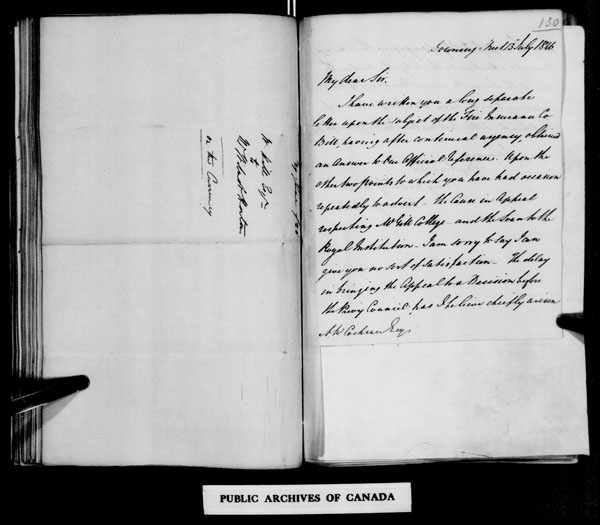 130
Downing Street 13 July 1826
My dear Sir.
I have written you a long separate
letter upon the subject of the Fire Insurance Co
Bill, having after continual urgency, obtained
an Answer to Our Official Reference. Upon the
other two points to which you have had occasion
repeatedly to advert - the Cause in Appeal
respecting McGill College - and the Loan to the
Royal Institution - I am sorry to say I can
give you no sort of satisfaction - The delay
in bringing the Appeal to a Decision before
the Privy Council, has I believe chiefly arisen
A W Cochran Esq.
Hill Esqre
to
Horton
on the Currency
PUBLIC ARCHIVES OF CANADA